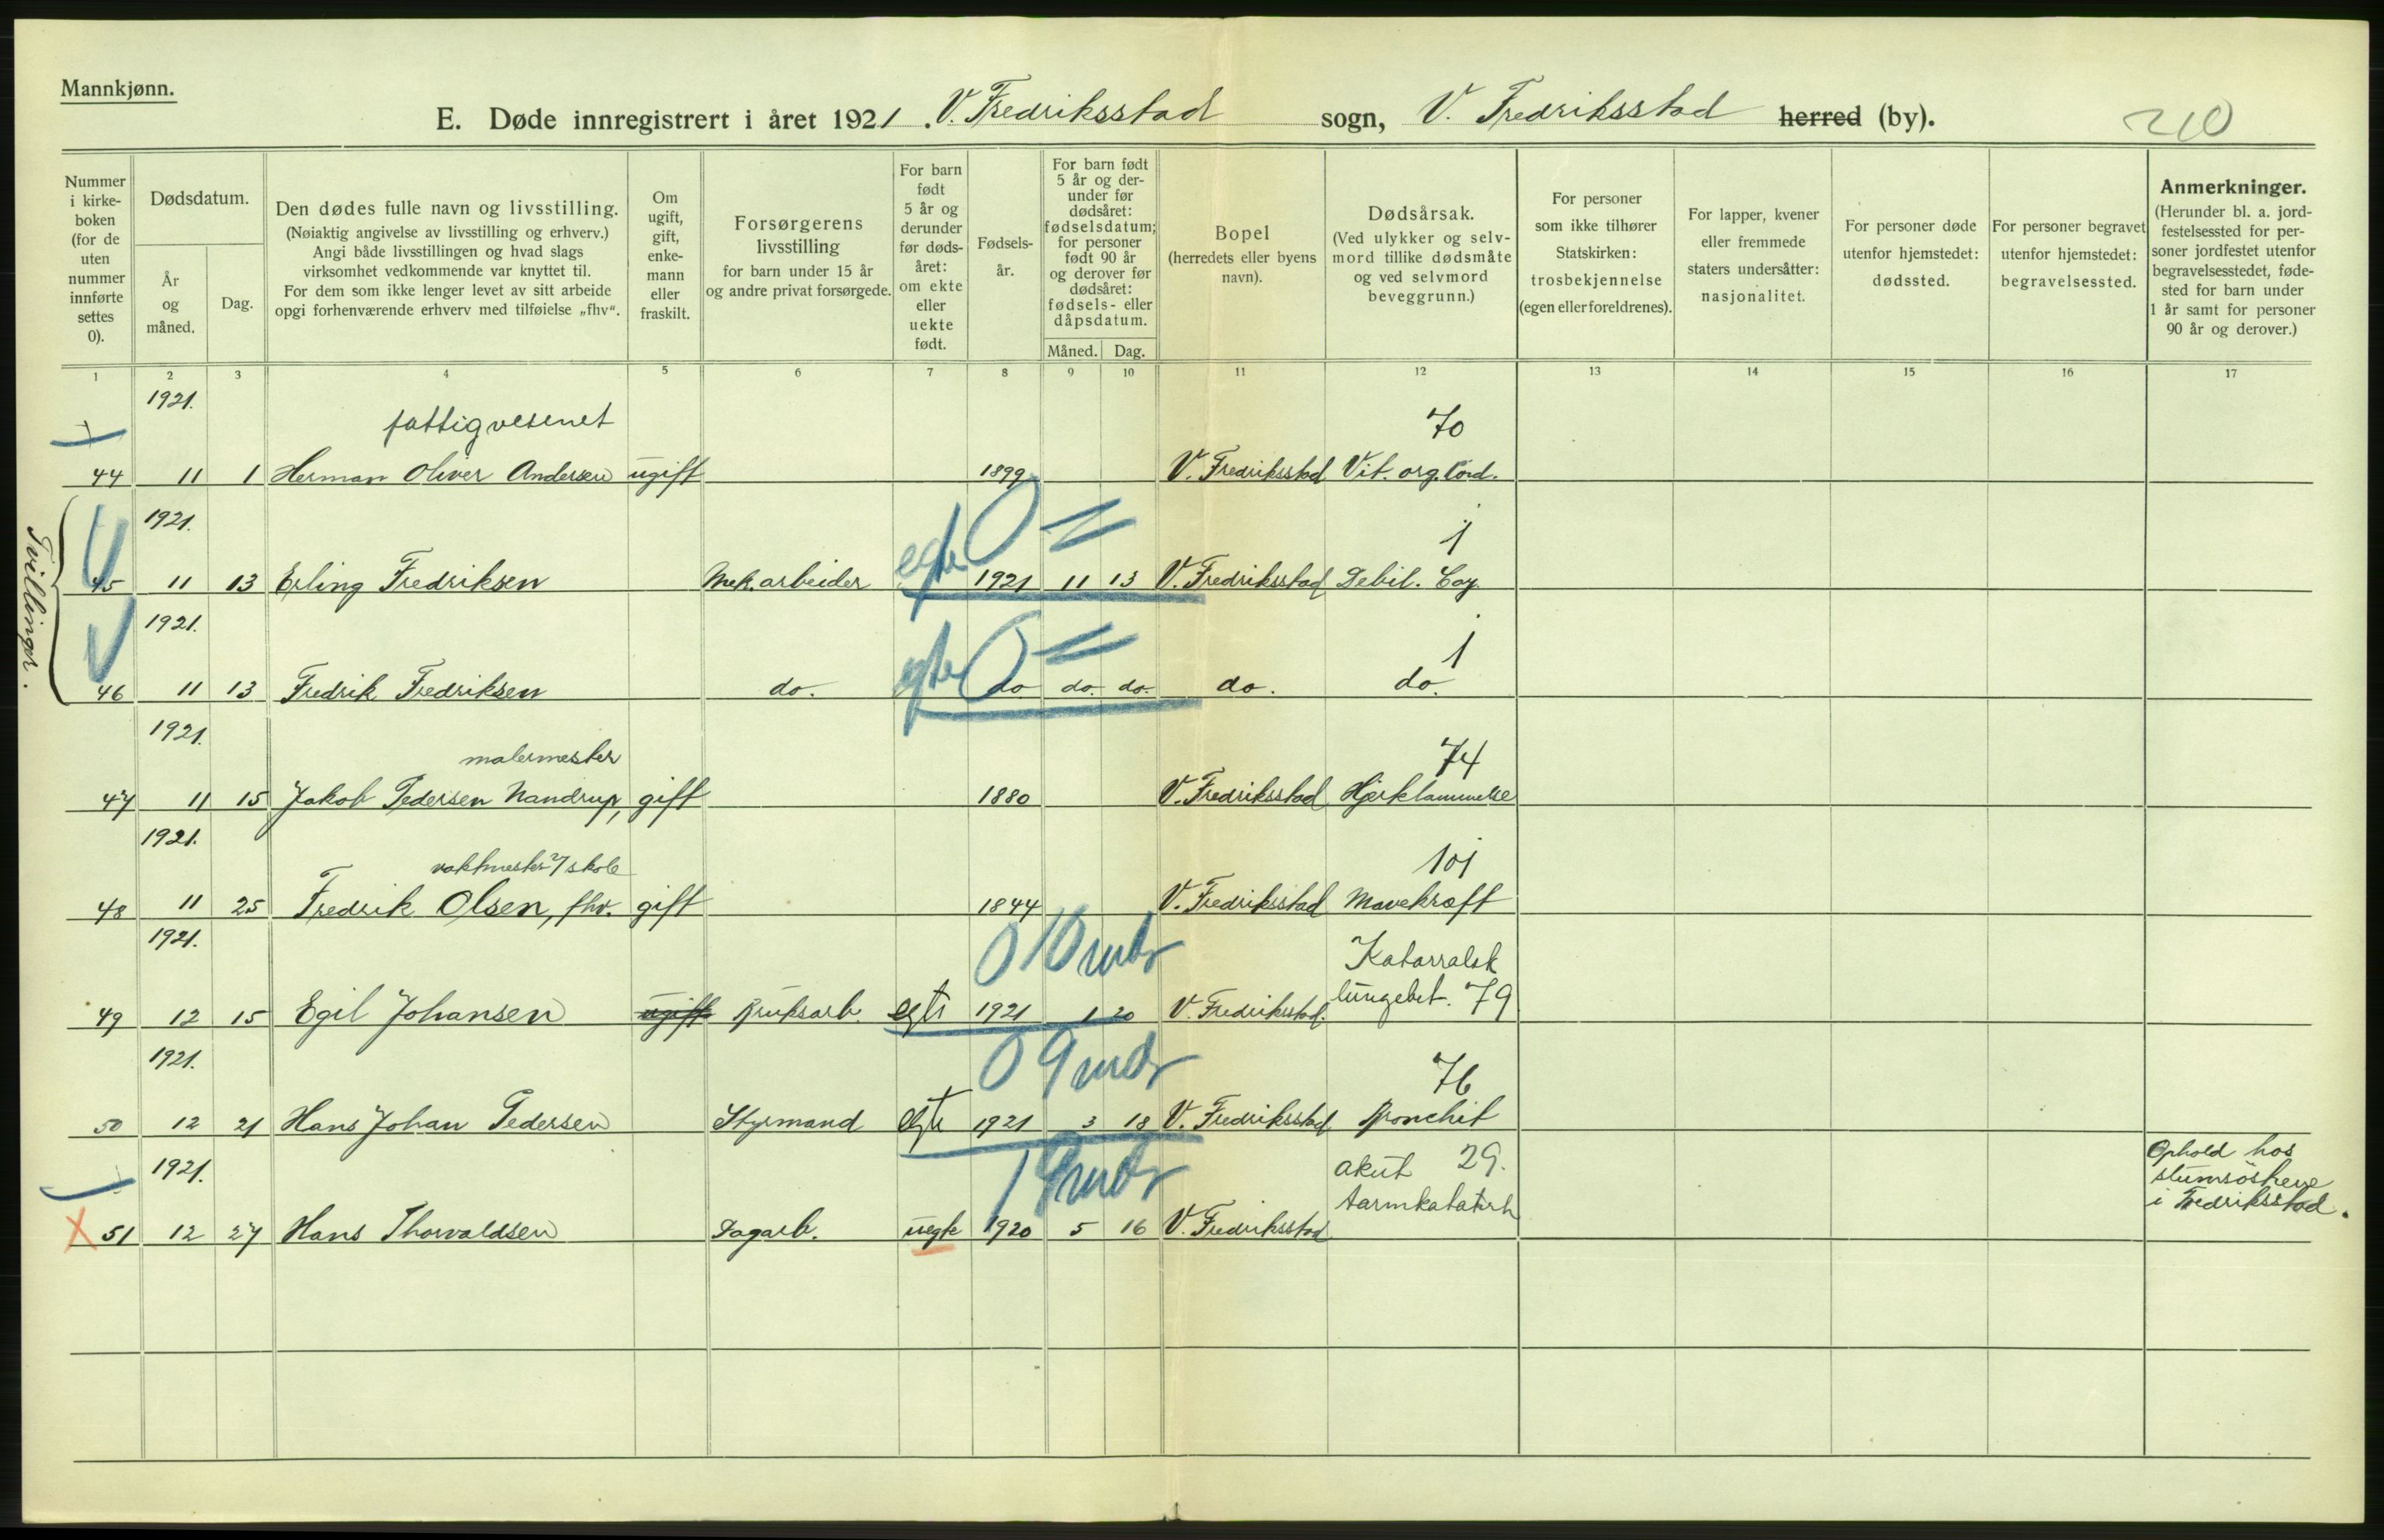 Mannkjønn.
E. Døde innregistrert i året 1921. V. Fredriksstad sogn, V. Fredriksstad herred (by).
210
Nummer
i kirke-
boken
(for de
uten
nummer
innførte
settes
0).
Dødsdatum.
År
og
måned.
Dag.
Den dødes fulle navn og livsstilling.
(Nøiaktig angivelse av livsstilling og erhverv.)
Angi både livsstillingen og hvad slags
virksomhet vedkommende var knyttet til.
For dem som ikke lenger levet av sitt arbeide
opgi forhenværende erhverv med tilføielse „fhv“.
Om
ugift,
gift,
enke-
mann
eller
fraskilt.
Forsørgerens
livsstilling
for barn under 15 år
og andre privat forsørgede.
For barn
født
5 år og
derunder
før døds-
året:
om ekte
eller
uekte
født.
Fødsels-
år.
For barn født
5 år og der-
under før
dødsåret:
fødselsdatum;
for personer
født 90 år
og derover før
dødsåret:
fødsels- eller
dåpsdatum.
Måned. Dag.
Bopel
(herredets eller byens
navn).
Dødsårsak.
(Ved ulykker og selv-
mord tillike dødsmåte
og ved selvmord
beveggrunn.)
For personer
som ikke tilhører
Statskirken:
trosbekjennelse
(egen eller foreldrenes).
For lapper, kvener
eller fremmede
staters undersåtter:
nasjonalitet.
For personer døde
utenfor hjemstedet:
dødssted.
For personer begravet
utenfor hjemstedet:
begravelsessted.
Anmerkninger.
(Herunder bl. a. jord-
festelsessted for per-
soner jordfestet utenfor
begravelsesstedet, føde-
sted for barn under
1 år samt for personer
90 år og derover.)
1 2 3 4 5 6 7 8 9 10 11 12 13 14 15 16 17
1921.
fattigvesenet 70
44 11 1 Herman Oliver Andersen ugift 1899 V. Fredriksstad Vit. org. cord.
Tvillinger.
1921. 0 1
45 11 13 Erling Fredriksen Mek. arbeider egte 1921 11 13 V. Fredriksstad Debil. Cog.
1921. 0 1
46 11 13 Fredrik Fredriksen do. egte do do. do. do. do.
1921.
malermester 74
47 11 15 Jakob Pedersen Nandrup, gift 1880 V. Fredriksstad Hjerklammelse
1921.
vaktmester v/ skole 101
48 11 25 Fredrik Olsen, fhv. gift 1844 V. Fredriksstad Mavekræft
1921. 0 10 mdr Katarralsk
lungebet. 79
49 12 15 Egil Johansen ugift Bruksarb. egte 1921 1 20 V. Fredriksstad.
1921. 0 9 mdr 76
50 12 21 Hans Johan Pedersen Styrmand egte 1921 3 18 V. Fredriksstad Bronchit
1921. akut 29.
tarmkatarrh
51 12 27 Hans Thorvaldsen Fagarb. uegte 1920 5 16 V. Fredriksstad
Ophold hos
slumsöstrene
i Fredriksstad.